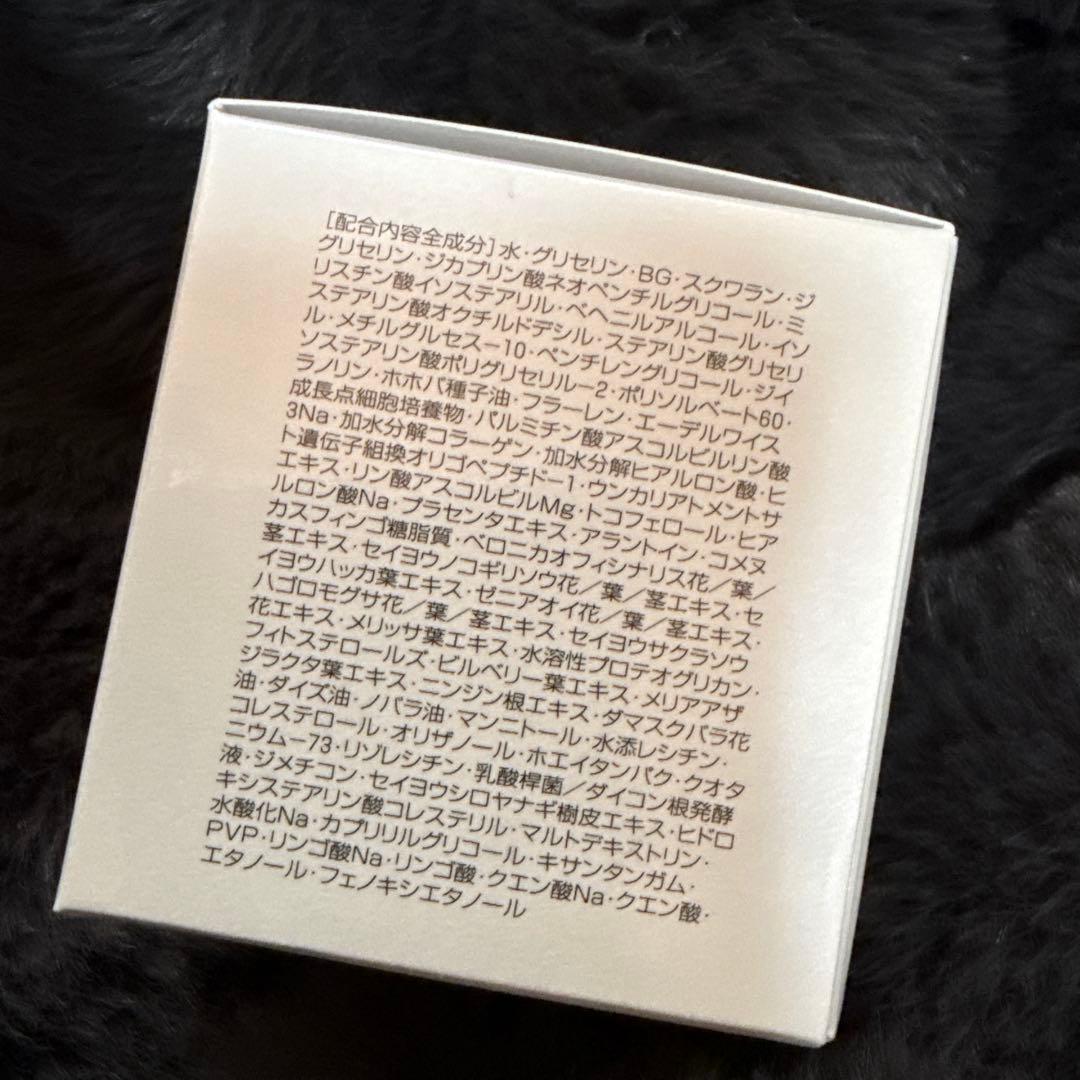 [配合内容全成分]水・グリセリン・BG・スクワラン・ジ
グリセリン・ジカプリン酸ネオペンチルグリコール・ミ
リスチン酸イソステアリル・ベヘニルアルコール・イソ
ステアリン酸オクチルドデシル・ステアリン酸グリセリ
ル・メチルグルセス-10・ペンチレングリコール・ジイ
ソステアリン酸ポリグリセリル-2・ポリソルベート60・
ラノリン・ホホバ種子油・フラーレン・エーデルワイス
成長点細胞培養物・パルミチン酸アスコルビルリン酸
3Na・加水分解コラーゲン・加水分解ヒアルロン酸・ヒ
ト遺伝子組換オリゴペプチド-1・ウンカリアトメントサ
エキス・リン酸アスコルビルMg・トコフェロール・ヒア
ルロン酸Na・プラセンタエキス・アラントイン・コメヌ
カスフィンゴ糖脂質・ベロニカオフィシナリス花/葉/
茎エキス・セイヨウノコギリソウ花/葉/茎エキス・セ
イヨウハッカ葉エキス・ゼニアオイ花/葉/茎エキス・
ハゴロモグサ花/葉/茎エキス・セイヨウサクラソウ
花エキス・メリッサ葉エキス・水溶性プロテオグリカン・
フィトステロールズ・ビルベリー葉エキス・メリアアザ
ジラクタ葉エキス・ニンジン根エキス・ダマスクバラ花
油・ダイズ油・ノバラ油・マンニトール・水添レシチン・
コレステロール・オリザノール・ホエイタンパク・クオタ
ニウム-73・リゾレシチン・乳酸桿菌/ダイコン根発酵
液・ジメチコン・セイヨウシロヤナギ樹皮エキス・ヒドロ
キシステアリン酸コレステリル・マルトデキストリン・
水酸化Na・カプリリルグリコール・キサンタンガム・
PVP・リンゴ酸Na・リンゴ酸・クエン酸Na・クエン酸・
エタノール・フェノキシエタノール